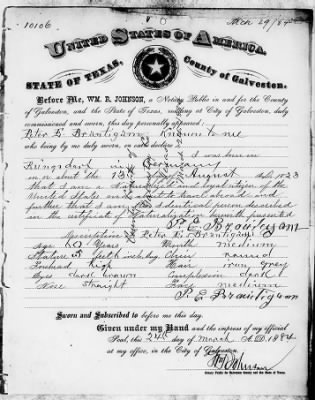 10106
Mch 29/84
UNITED STATES OF AMERICA.
STATE OF TEXAS, County of Galveston.
Before Me, WM. R. JOHNSON, a Notary Public in and for the County
of Galveston, and the State of Texas, residing at City of Galveston, duly
commissioned and sworn, this day personally appeared
Peter E. Brautigam Known to me
who being by me duly sworn, on oath declares
I was born in
in Germany
on or about the 13th day of August 1823
that I am a naturalized and loyal citizen of the
United States and about to travel abroad and
further that I am the identical person described
in the certificate of Naturalization herewith presented
P. E. Brautigam
Description of Peter E. Brautigam
age 60 Years Mouth medium
Stature 5 feet inch. Eng. Chin round
Forehead high Hair iron grey
Eyes dark brown Complexion dark
Nose straight Face medium
P. E. Brautigam
Sworn and Subscribed to before me this day.
Given under my Hand and the impress of my official
Seal, this 24th day of March A.D. 1884
at my office, in the City of Galveston.
Wm R Johnson
Notary Public for Galveston County and the State of Texas.